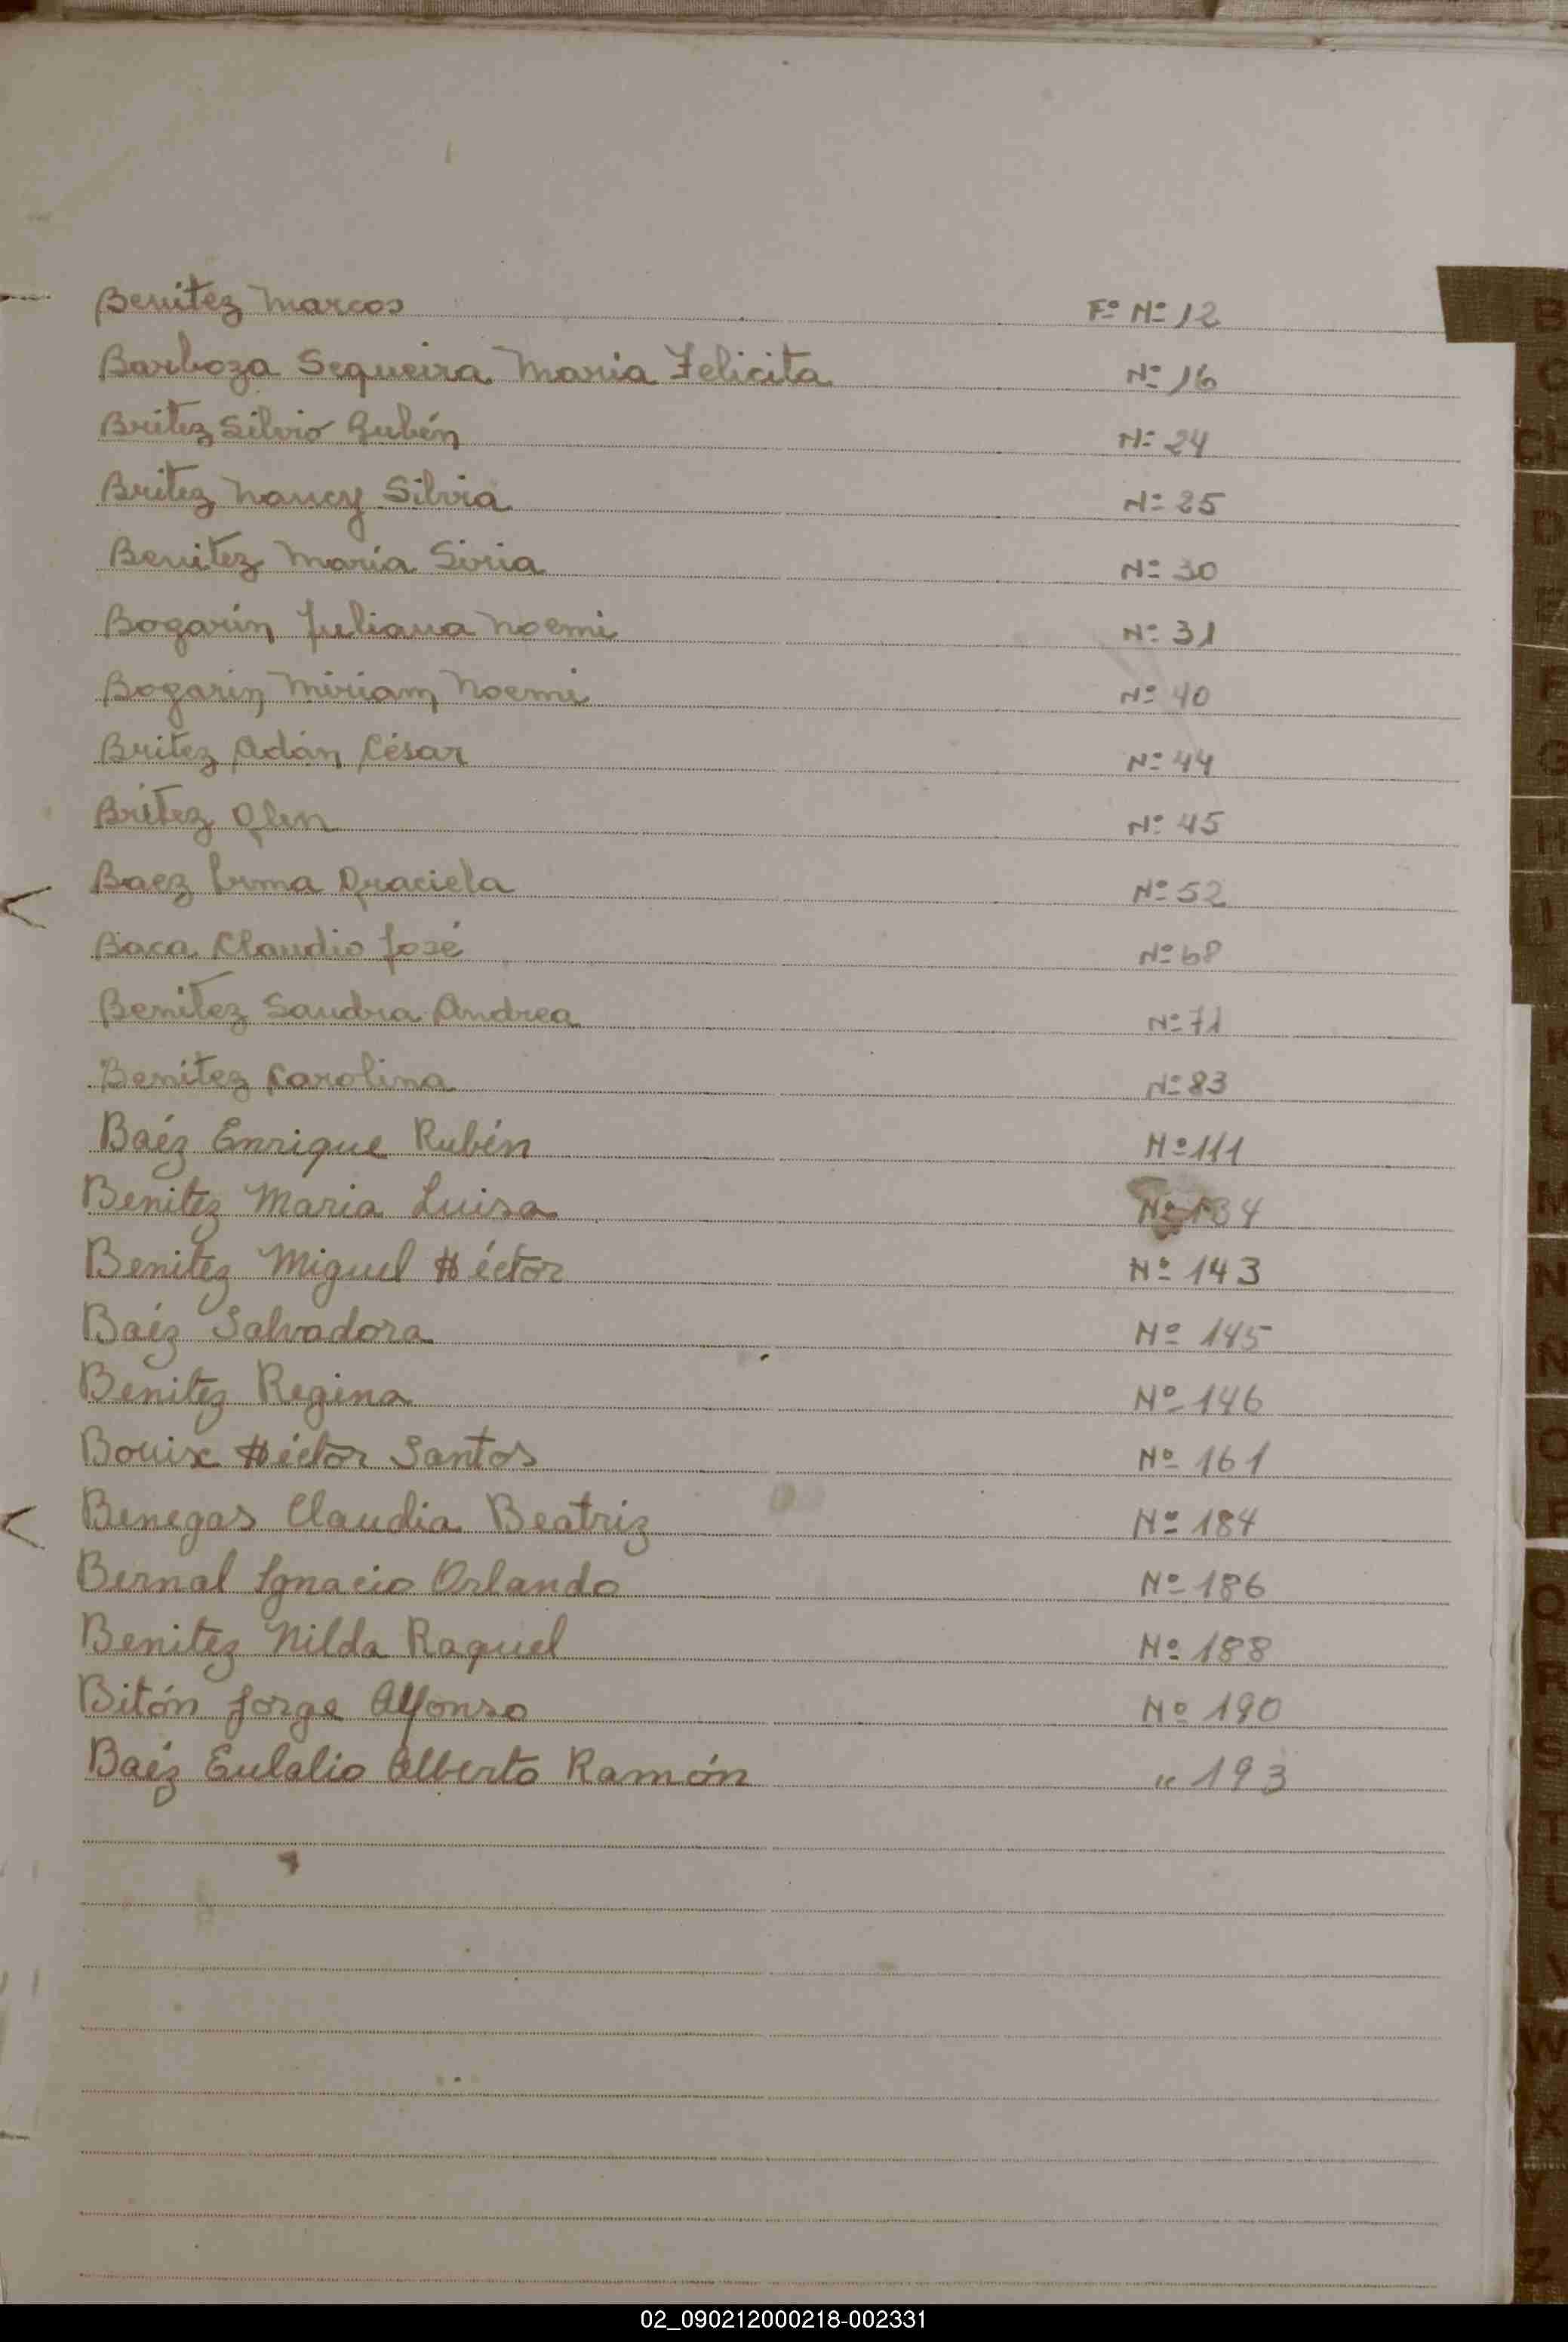 Benitez Marcos Fº Nº 12
Barboza Sequeira Maria Felicita Nº 16
Britez Silvio Rubén Nº 24
Britez Nancy Silvia Nº 25
Benitez María Siria Nº 30
Bogarín Juliana Noemi Nº 31
Bogarin Miriam Noemi Nº 40
Britez Adán César Nº 44
Britez Nº 45
Baez Irma Graciela Nº 52
Baca Claudio José Nº 68
Benitez Sandra Andrea Nº 71
Benitez Carolina Nº 83
Baéz Enrique Rubén Nº 111
Benitez Maria Luisa Nº 134
Benitez Miguel Héctor Nº 143
Baéz Salvadora Nº 145
Benitez Regina Nº 146
Bouix Héctor Santos Nº 161
Benegas Claudia Beatriz Nº 184
Bernal Ignacio Orlando Nº 186
Benitez Nilda Raquel Nº 188
Bitón Jorge Alfonso Nº 190
Baéz Eulalio Alberto Ramón " 193
B
C
CH
D
E
F
G
H
I
K
L
M
N
Ñ
O
P
Q
R
S
T
U
V
W
X
Y
Z
02_090212000218-002331